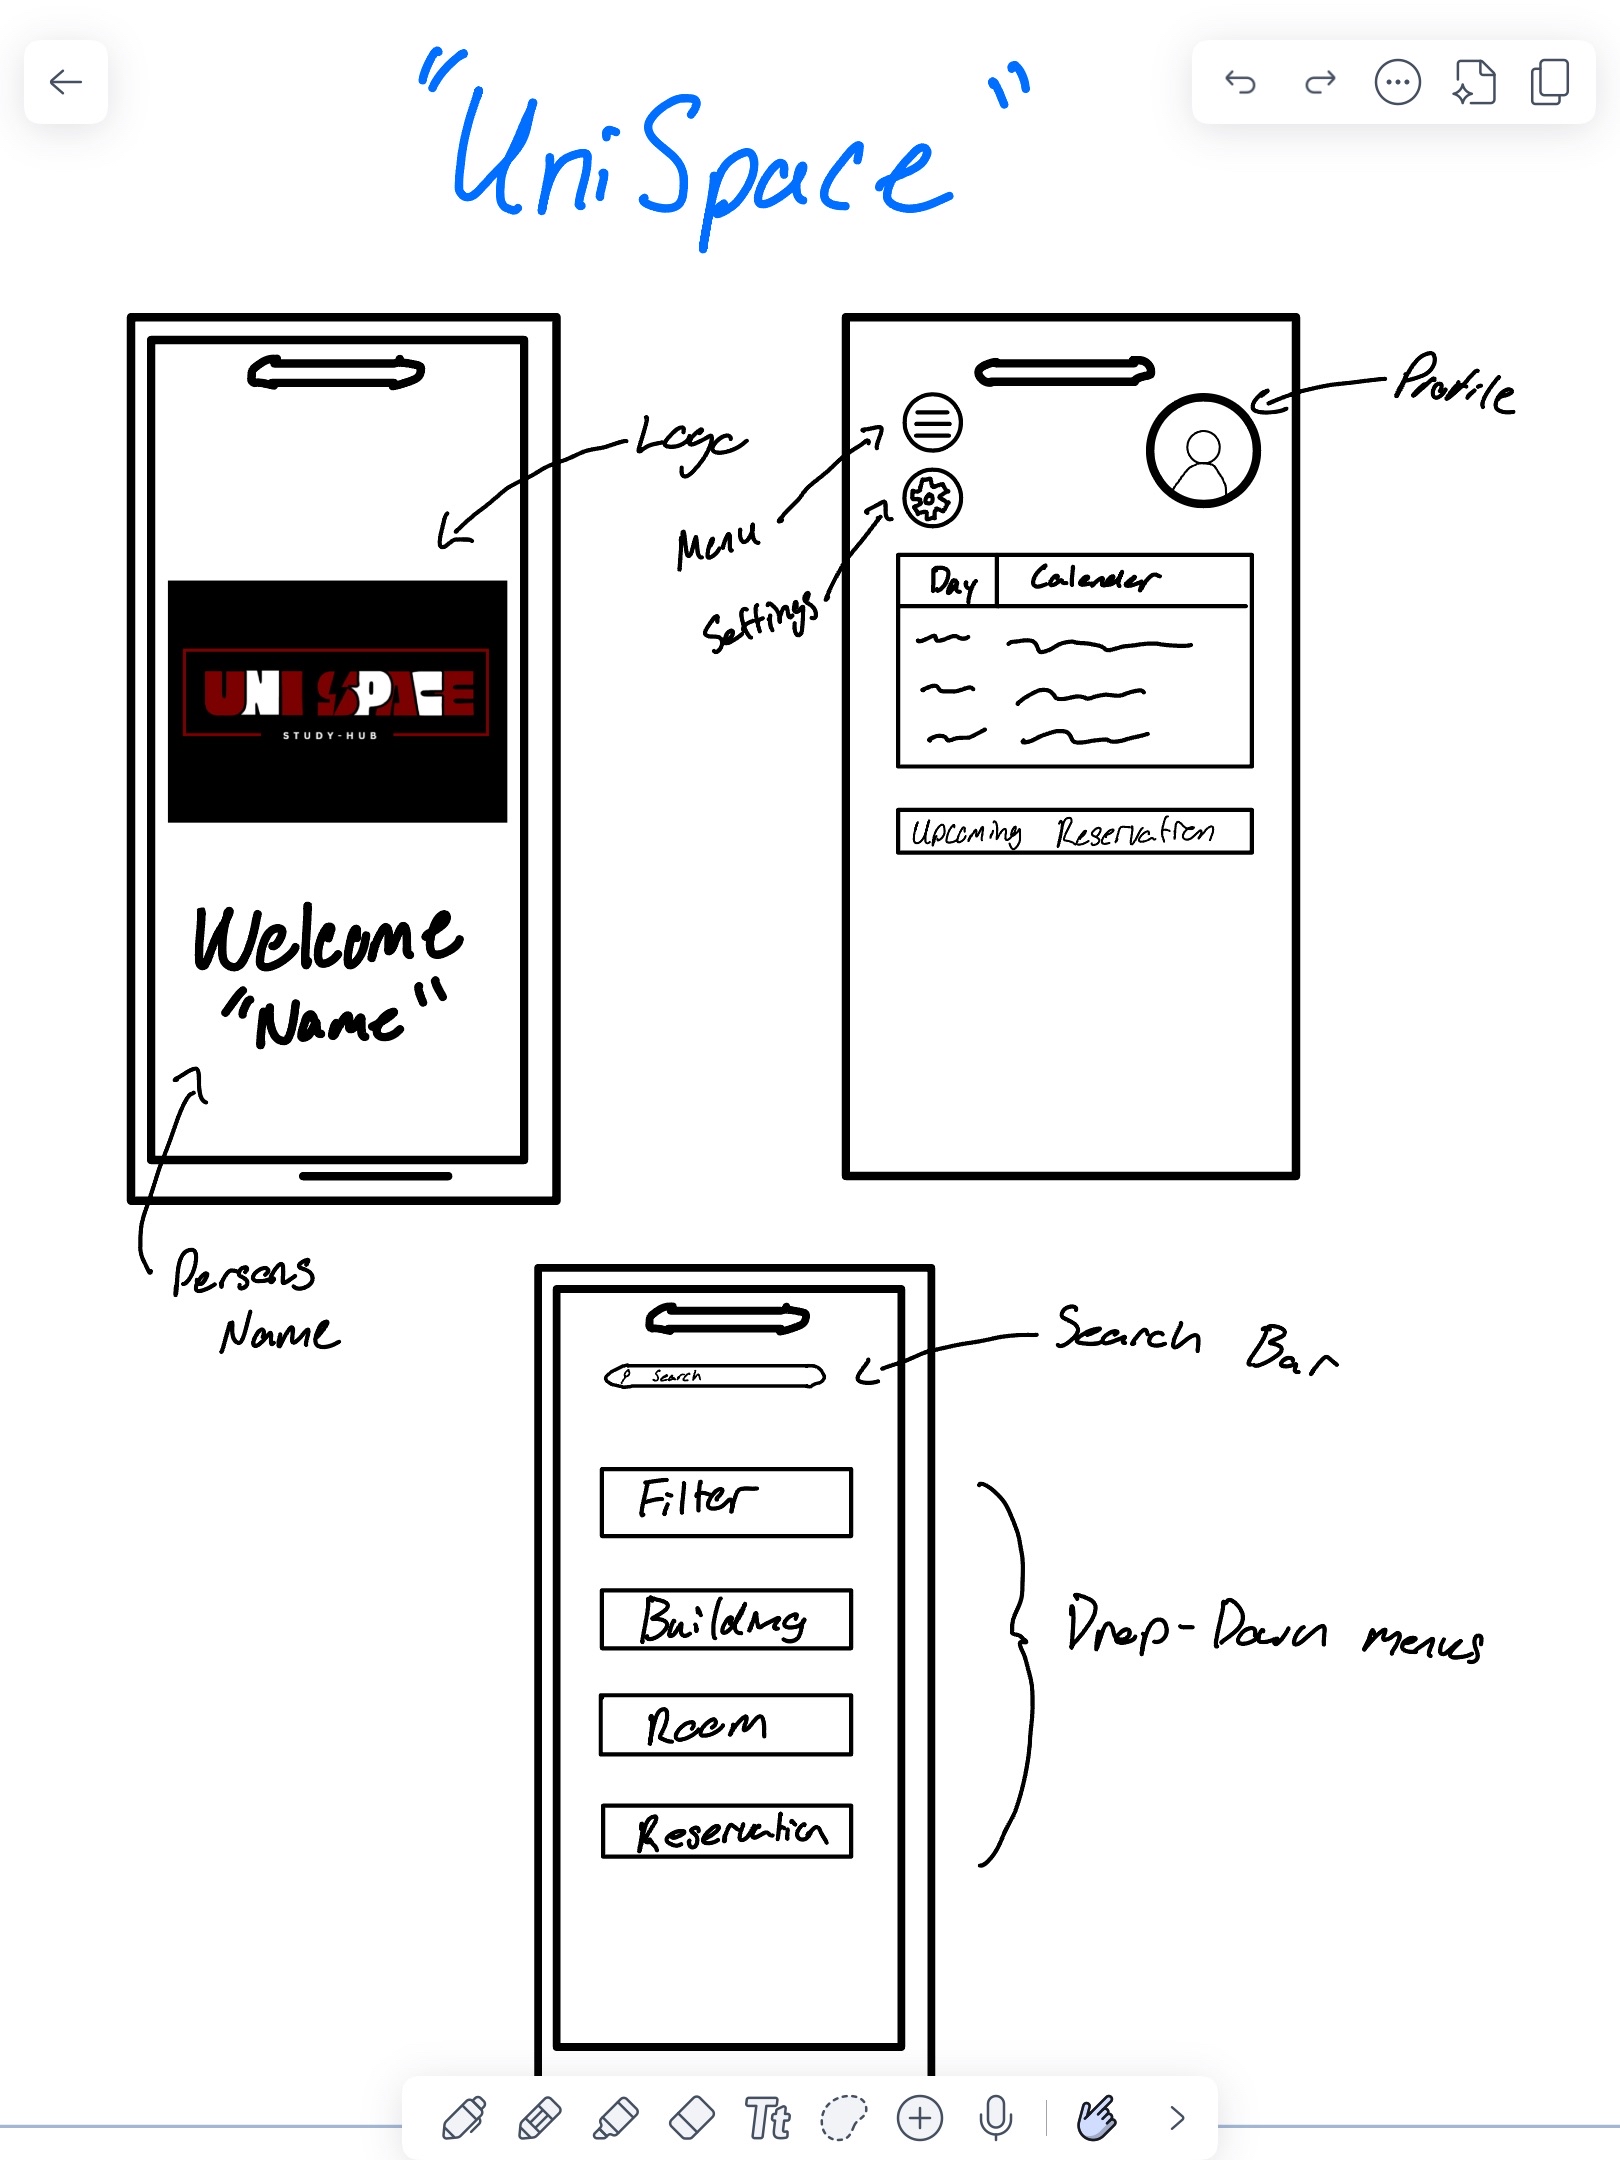 "UniSpace"
Logo
UNI SPACE
STUDY-HUB
Welcome
"Name"
Persons
Name
Profile
Menu
Settings
Day Calender
Upcoming Reservation
Search Bar
Search
Filter
Building
Room
Reservation
Drop-Down menus
Tt